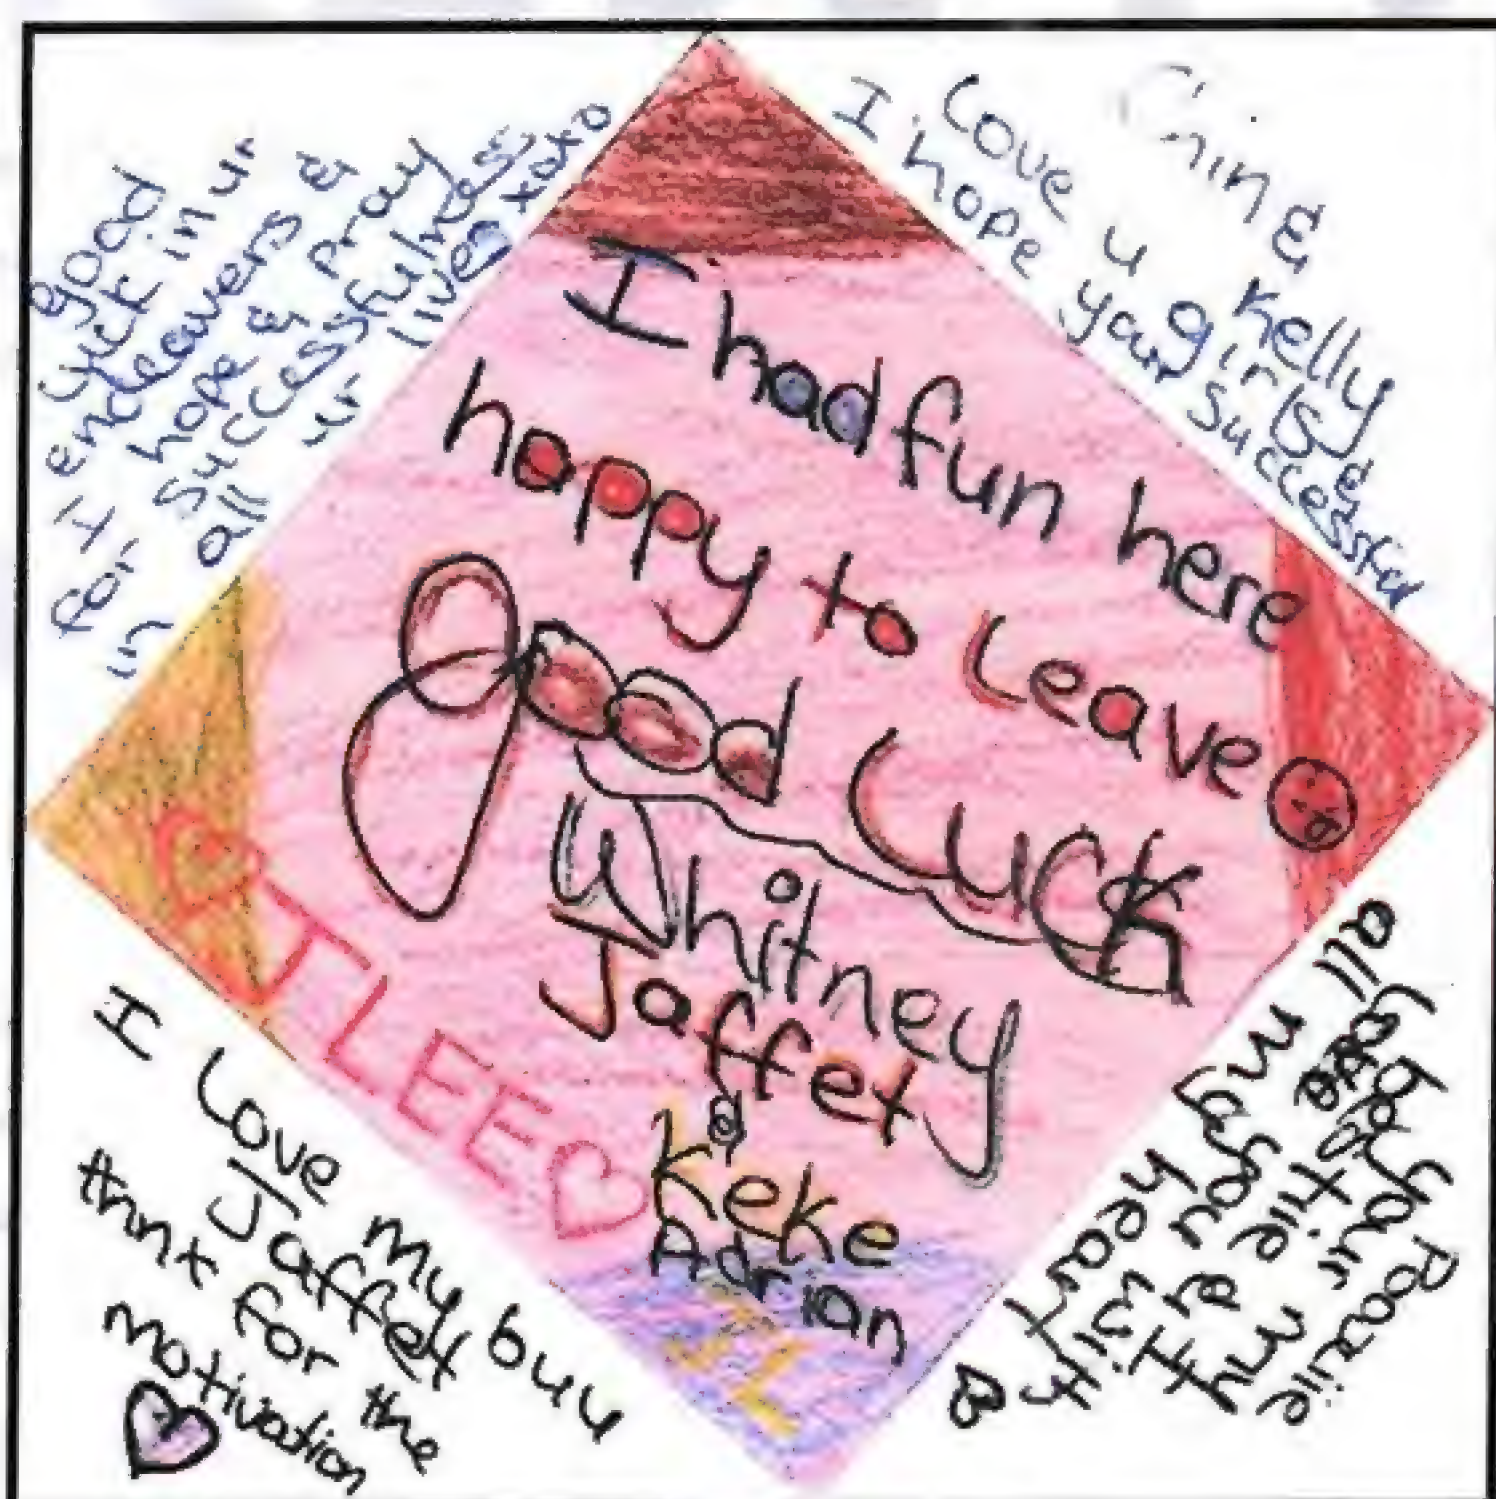 good
luck in ur
endeavers &
I hope & pray
for successfulness
in all ur lives xoxo
& Kelly
I Love u girls &
I hope your successful
I had fun here
happy to leave
Good Luck
Whitney
Jaffet
&
Keke
Adrian
JL
JLEE
I Love my buu
Jaffet
thnx for the
motivation
all
your
my
you with
my heart